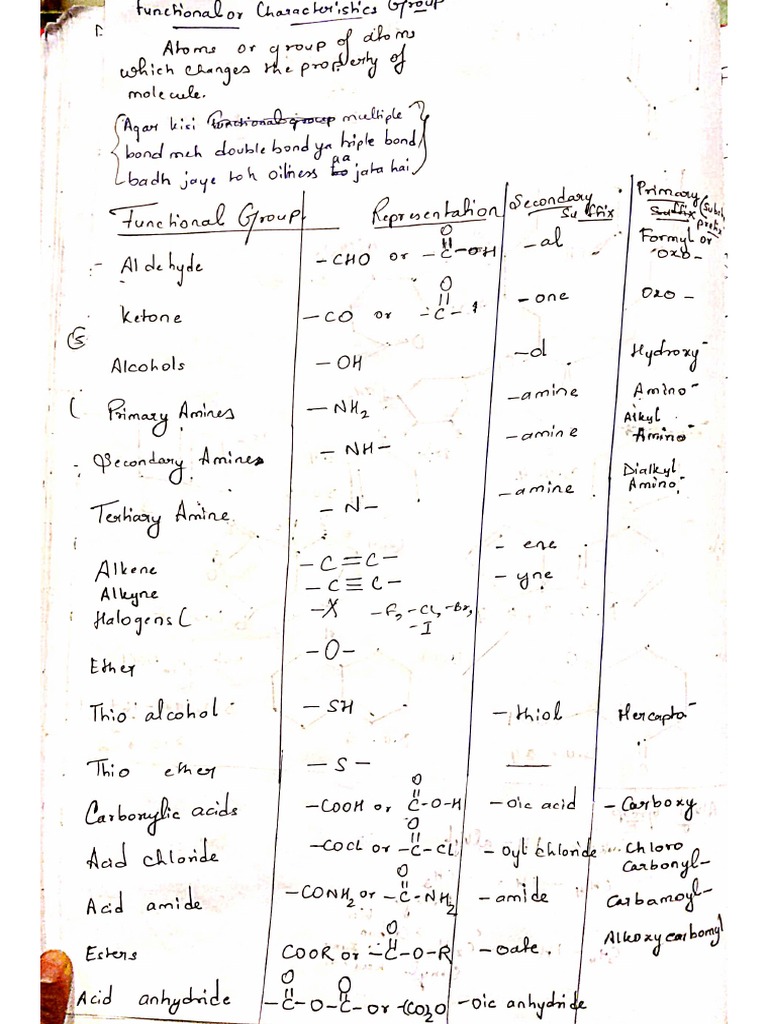 Functional or Characteristics Group
Atoms or group of atoms
which changes the property of
molecule.
Agar kisi functional group multiple
bond meh double bond ya triple bond
badh jaye toh oiliness aa jata hai
Functional Group Representation Secondary Suffix Primary Suffix
Aldehyde -CHO or -C-OH O -al Formyl or oxo-
Ketone -CO or -C- O -one oxo-
Alcohols -OH -ol Hydroxy-
Primary Amines -NH2 -amine Amino-
Secondary Amines -NH- -amine Alkyl Amino-
Tertiary Amine -N- -amine Dialkyl Amino-
Alkene -C=C- -ene
Alkyne -C≡C- -yne
Halogens -X -F, -Cl, -Br, -I
Ether -O-
Thio alcohol -SH -thiol Mercapto-
Thio ether -S- —
Carboxylic acids -COOH or C-O-H O -oic acid -Carboxy
Acid chloride -COCL or -C-CL O -oyl chloride Chloro Carbonyl-
Acid amide -CONH2 or -C-NH2 O -amide Carbamoyl-
Esters COOR or -C-O-R O -oate. Alkoxy carbonyl
Acid anhydride -C-O-C- O O or -(CO)2O -oic anhydride